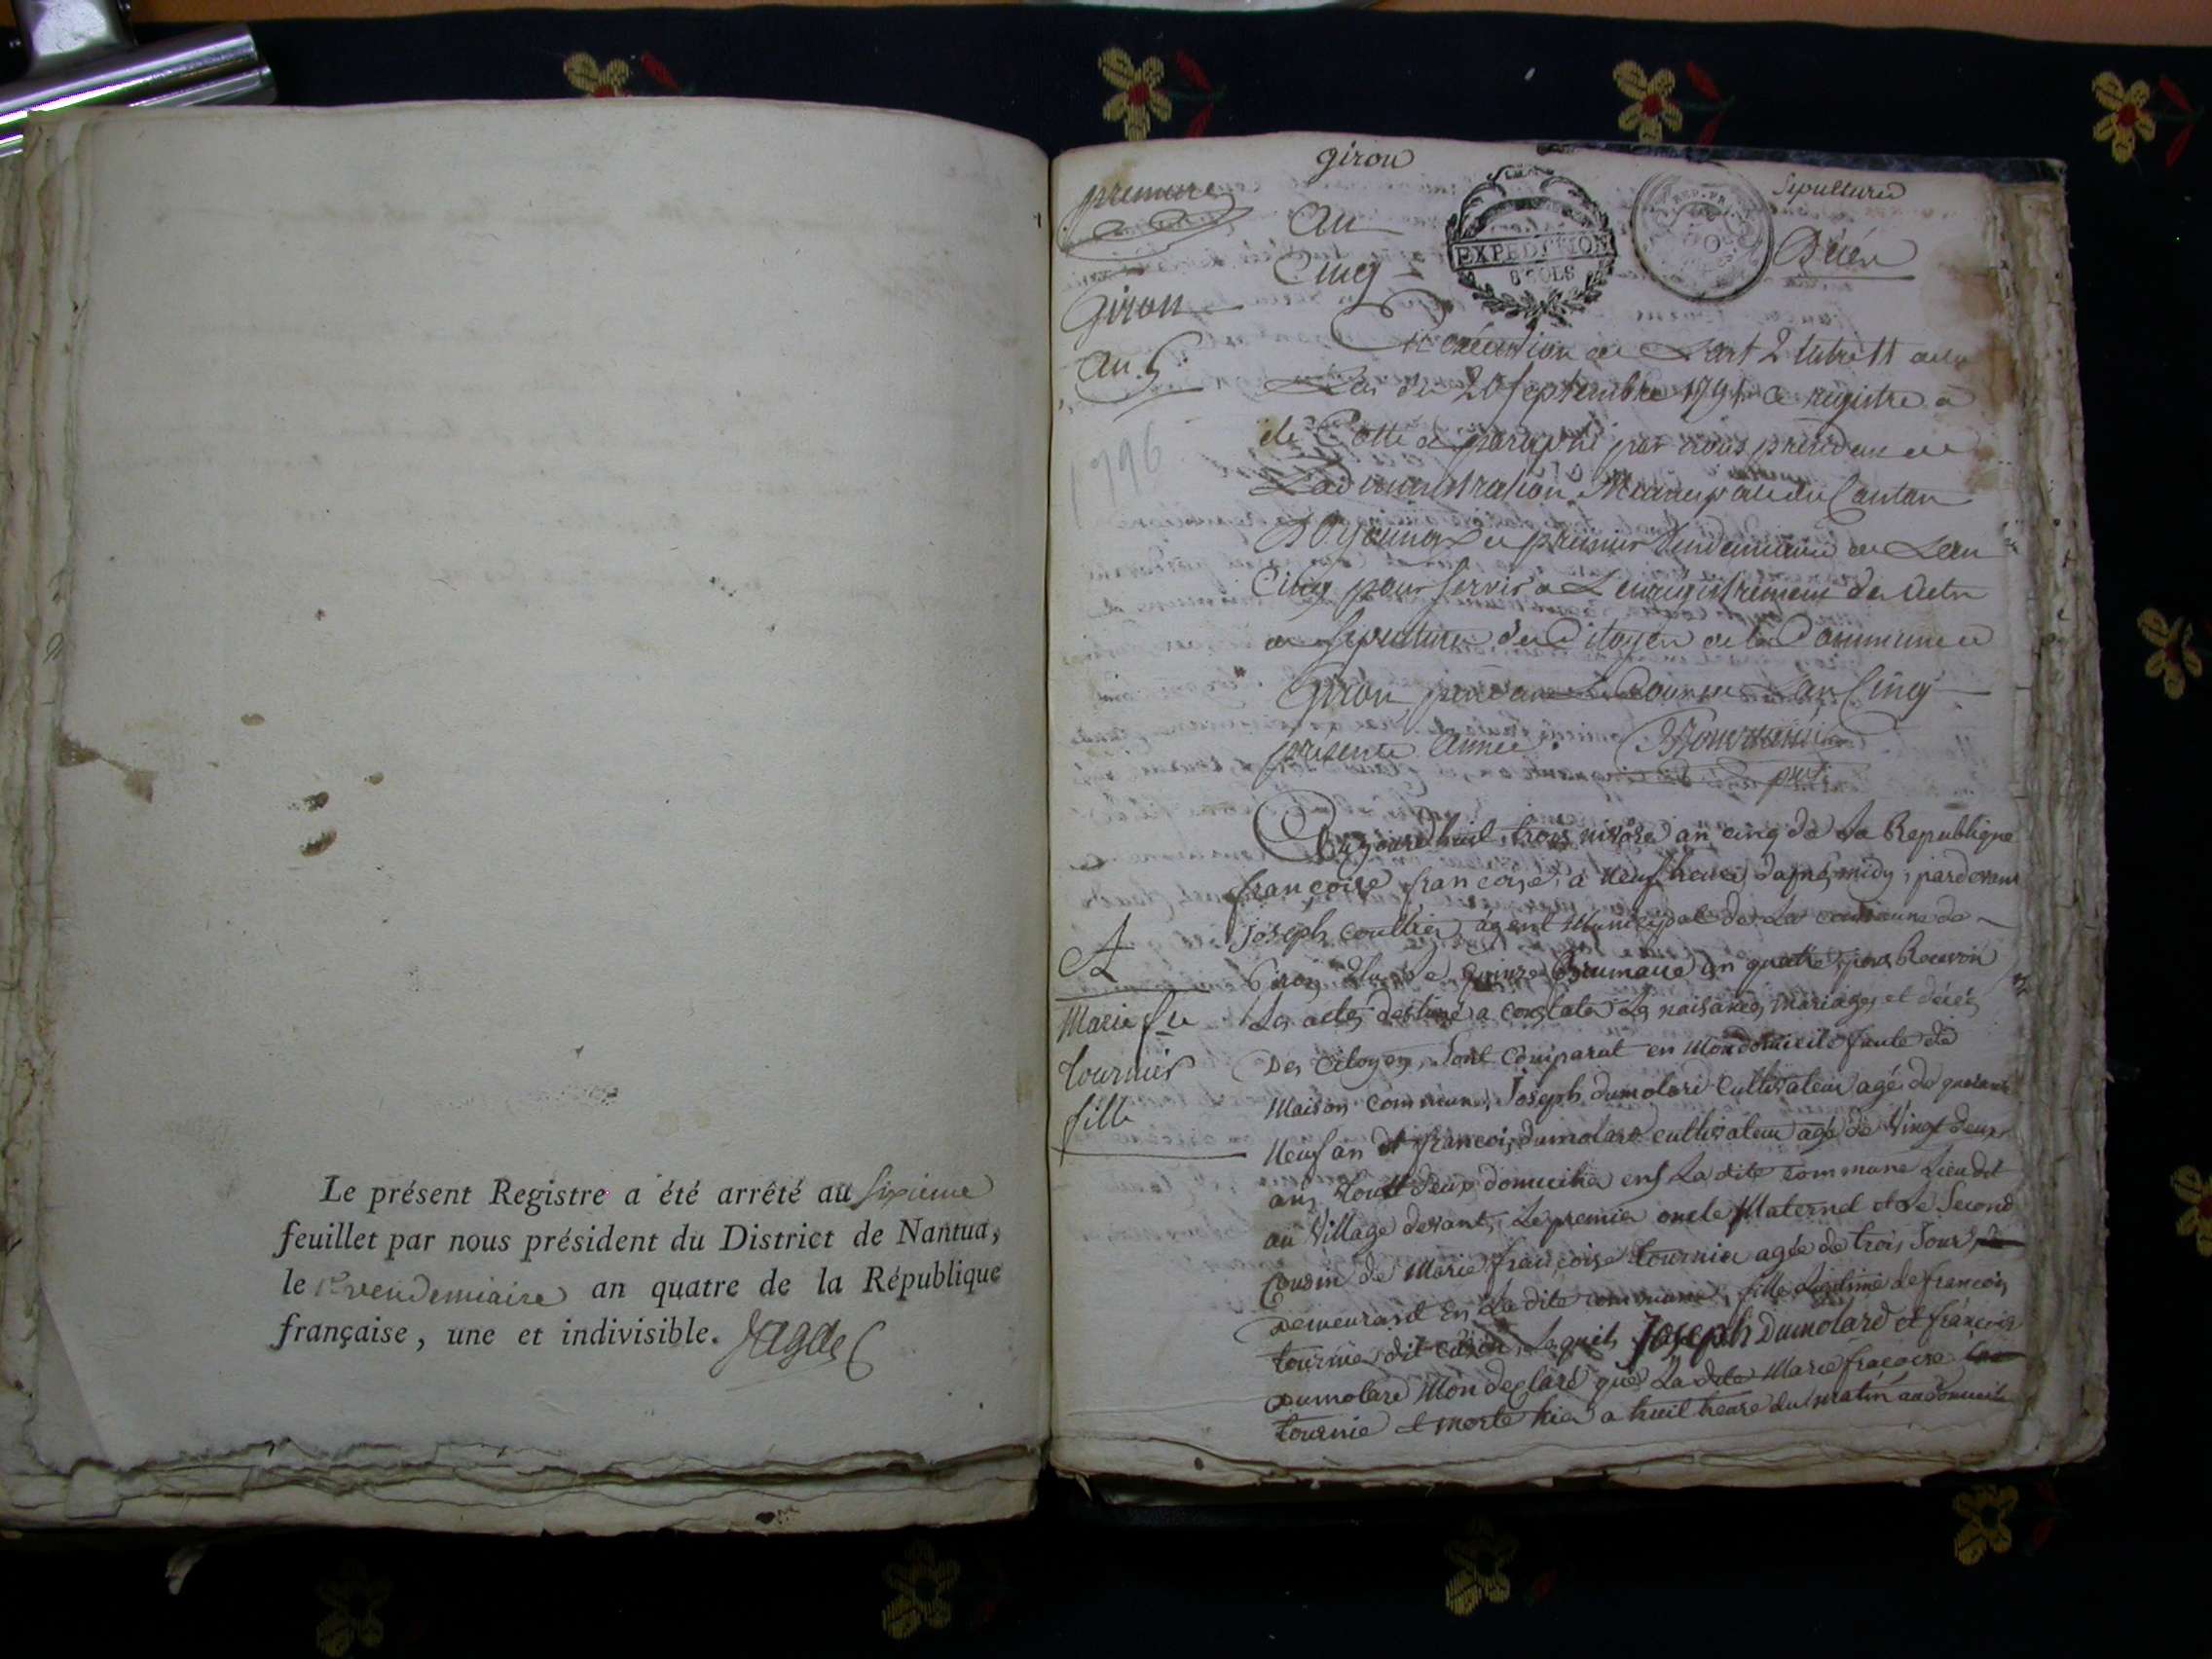 Le présent Registre a été arrêté au sixieme
feuillet par nous président du District de Nantua,
le 1er vendemiaire an quatre de la République
française, une et indivisible.
giron
premiere
Sepulture
An
EXPEDITION
8 SOLS
REP. FR.
Décés
Cinq
Giron
An 5
En exécution de L'art 2 titre 11 de la
Loi du 20 septembre 179 Ce registre a
1796
été Cotté et paraphé par nous president de
L'administration Municipale du Canton
D'Oyonnax le premier Vendemiaire de L'an
Cinq pour servir a L'enregistrement des Actes
de sepulture des Citoyen de la Commune de
Giron pendant Le Cours de L'an Cinq
presente année.
pdt
Aujourd'huit trois nivose an cinq de La Republique
françoise françoise, a neuf heures dapres midy, pardevant
joseph coultier, agent Municipal de La commune de
Giron élu le quinze Brumaire an quatre, pour Recevoir
A
Les actes destiné a constater Les naisances, mariages et décés
Marie fse
Des citoyens, sont comparut en Mon domicile faute de
Tournier
Maison commune, Joseph dumolard cultivateur agé de quarante
fille
Neuf an et françois dumolard cultivateur agé de Vingt deux
ans, tout deux domicilié en La dite commune Lieu dit
au Village devant, Le premier oncle Maternel et Le Second
Cousin de Marie françoise tournier agée de trois Jour
Demeurant En La dite commune, fille Legitime de françois
tournier dit Lequels Joseph Dumolard et françois
Dumolard M'on declaré que La dite Marie fracoise
tournie et morte hier a huit heure du matin au domicile